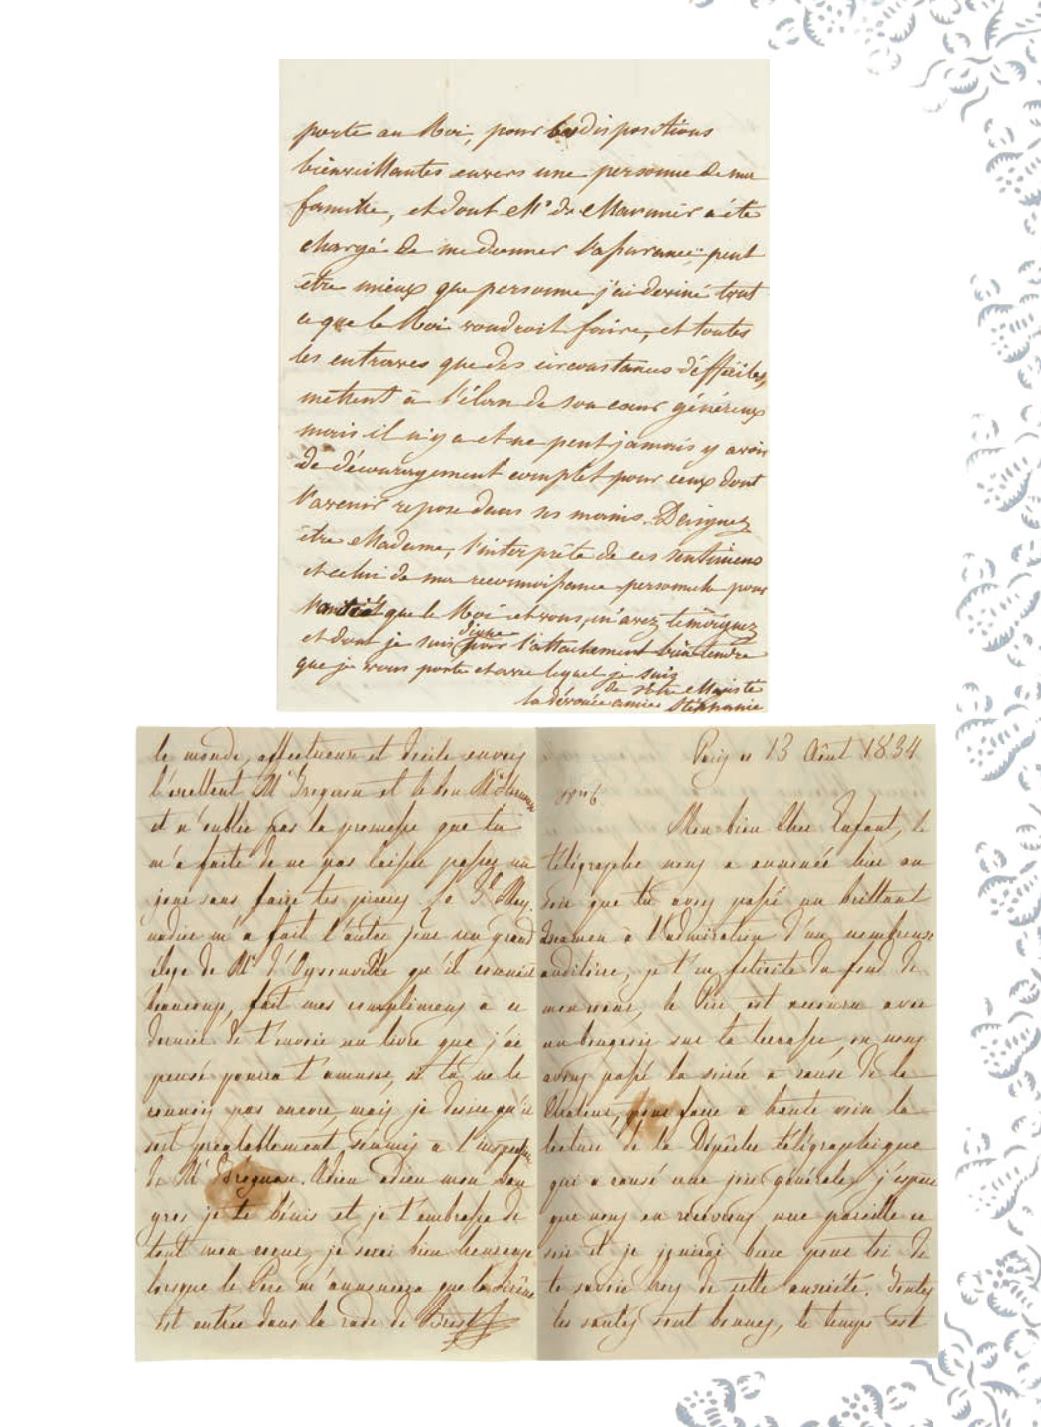 porte au Roi, pour les dispositions
bienveillantes envers une personne de ma
famille, et dont Mr de Marmier a été
chargé de me donner l'assurance; peut
être mieux que personne j'ai deviné tout
ce que le Roi voudroit faire, et toutes
les entraves que des circonstances difficiles,
mettent à l'élan de son cœur généreux
mais il n'y a et ne peut jamais y avoir
de découragement complet pour ceux dont
l'avenir repose dans ses mains. Daignez
être Madame, l'interprète de ces sentimens
et celui de ma reconnoissance personnelle pour
que le Roi et vous, m'avez témoignez
et dont je suis digne par l'attachement bien tendre
que je vous porte et avec lequel je suis
de votre Majesté
la dévouée amie Stéphanie
le monde, affectueux et docile envers
l'excellent Mr et le bon Mr
et n'oublie pas la promesse que tu
m'a faite de ne pas laisser passer un
jour sans faire tes prières
m'a fait l'autre jour un grand
éloge de Mr d' qu'il connait
beaucoup, fait mes complimens à ce
dernier. Je t'envoie un livre que j'ai
pensé pourra t'amuser, si tu ne le
connois pas encore, mais je desire qu'il
soit prealablement soumis à l'inspection
de Mr. Adieu adieu mon bon
gros je te bénis et je t'embrasse de
tout mon cœur, je serai bien heureuse
lorsque le Père m'annoncera que la Sirène
est entrée dans la rade de Brest
13 Août 1834
Mon bien Cher Enfant, le
télégraphe nous a annoncé hier au
soir que tu avois passé un brillant
examen à l'admiration d'un nombreux
auditoire, je t'en felicite du fond de
mon cœur, le Père est accouru avec
un bougeoir sur la terrasse, où nous
avons passé la soirée à cause de la
chaleur, pour faire à haute voix la
lecture de la Dépêche télégraphique
qui a causé une joie générale, j'espère
que nous en recevrons une pareille ce
soir et je jouirai bien pour toi de
te savoir hors de cette anxiété. Toutes
les santés sont bonnes, le temps est